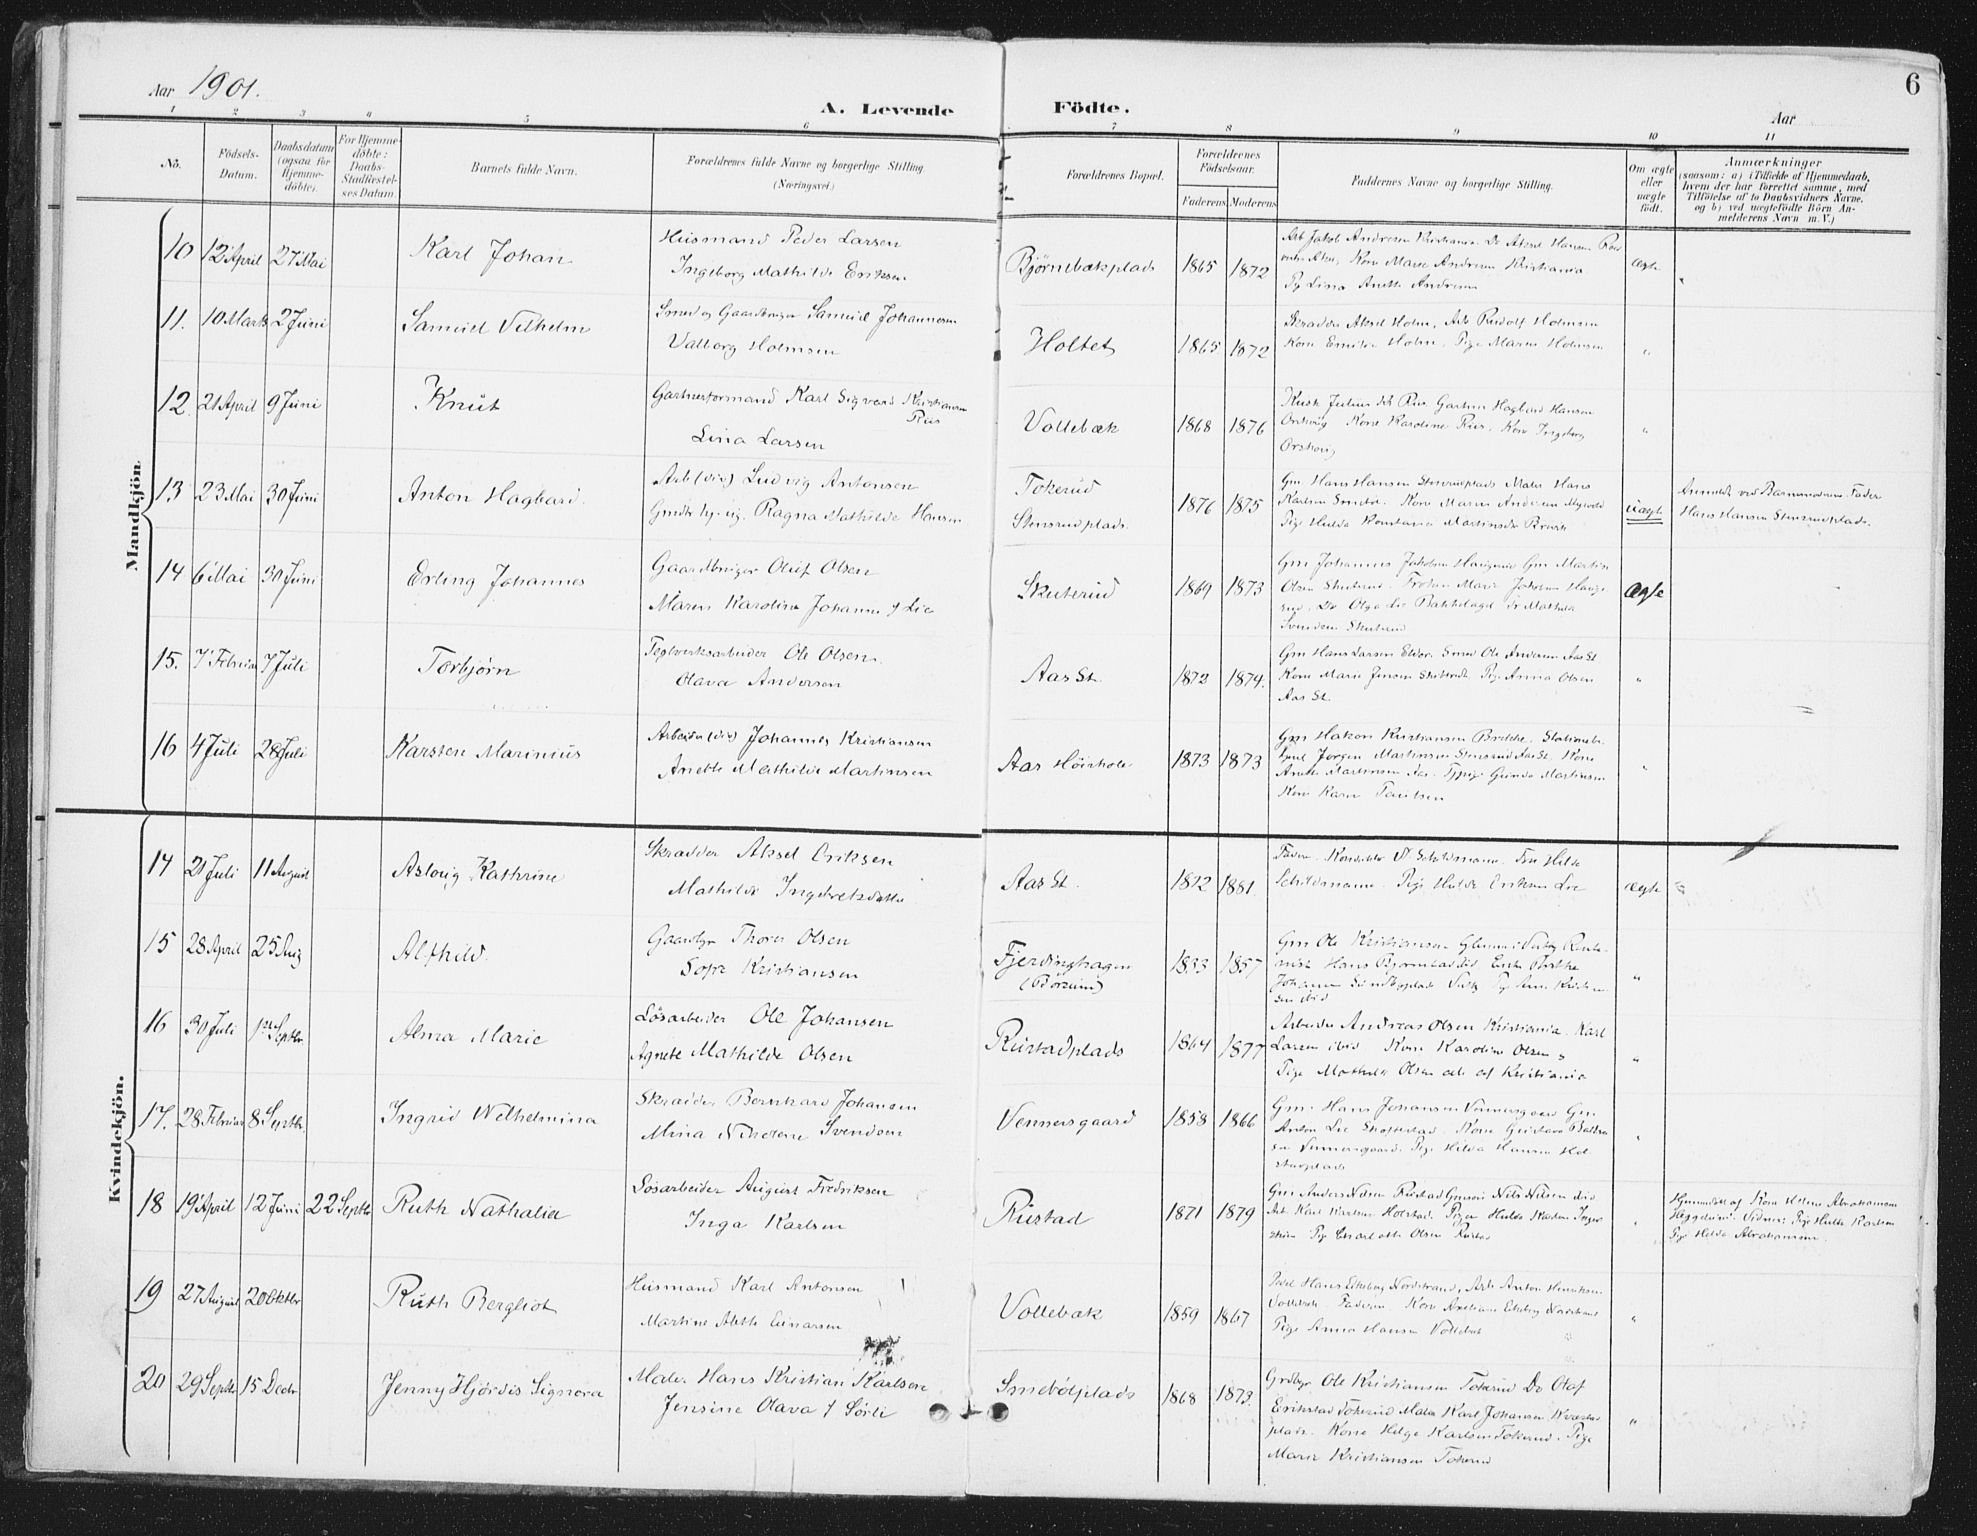 Aar 1901.
A. Levende Födte.
Aar
6
1 2 3 4 5 6 7 8 9 10 11
No.
Födsels-
Datum.
Daabsdatum
(ogsaa for
Hjemme-
döbte).
For Hjemme-
döbte:
Daabs-
Stadfæstel-
ses Datum.
Barnets fulde Navn.
Forældrenes fulde Navne og borgerlige Stilling
(Næringsvei.)
Forældrenes Bopæl.
Forældrenes
Födselsaar.
Faderens Moderens
Faddernes Navne og borgerlige Stilling.
Om ægte
eller
uægte
født.
Anmærkninger
(saasom: a) i Tilfælde af Hjemmedaab,
hvem der har forrettet samme, med
Tilföielse af to Daabsvidners Navne,
og b) ved uægtefödte Börn An-
melderens Navn m. V.)
Mandkjön.
10 12 April 27 Mai Karl Johan
Husmand Peder Larsen
Ingeborg Mathilde Eriksen
Bjørnebækplads 1865 1872
Arb Jakob Andresen Kristiania
Kone Marie Andresen Kristiania
Pg Lina Anette Andresen
ægte
11. 10 Marts 2 Juni Samuel Vilhelm
Smed og Gaardbruger Samuel Johannesen
Valborg Holmsen
Holtet 1865 1872
Skrædder Aksel Holm, Arb Rudolf Holmsen
Kone Emilie Holm, Pige Maren Holmsen
"
12. 21 April 9 Juni Knut
Gartnerformand Karl Sigvard Kristiansen
Rus
Lina Larsen
Vollebæk 1868 1876
Gartner Hagbard Hansen
Kone Karoline Rus, Kone Ingeborg
"
13 23 Mai 30 Juni Anton Hagbard.
Arb (div) Ludvig Antonsen
Ragna Mathilde Hansen
Tokerud
Stensrudplads. 1876 1875
Gm Hans Hansen Stensrudplads Maler Hans
Karlsen Kone Maren Andersen
Pige Hulda Konstanse
uægte
Anmeldt ved Barnemoderens Fader
Hans Hansen Stensrudplads.
14 6 Mai 30 Juni Erling Johannes
Gaardbruger Oluf Olsen
Maren Karoline Johanne f Lie
Skuterud 1869 1873
Gm Johannes Jakobsen Gm Martin
Olsen Skuterud. Frøken Marie Jakobsen
Olga Lie Mathilde
Svendsen Skuterud
ægte
15. 7 Februar 7 Juli Torbjørn
Teglverksarbeider Ole Olsen.
Olava Andersen
Aas St. 1872 1874.
Gm Hans Larsen Smed Ole Andersen Aas St
Kone Marie Jensen Pige Anna Olsen
Aas St.
"
16 4 Juli 28 Juli Karsten Marinius
Arbeider (div) Johannes Kristiansen
Anette Mathilde Martinsen
Aas Høiskole 1873 1873
Gm Hakon Kristiansen Brekke. Stationsb.
Jørgen Martinsen Stensrud Aas St. Kone
Anette Martinsen Aas. Gunda Martinsen
Kone Karen Paulsen
"
Kvindekjön.
14 21 Juli 11 August Aslaug Kathrine
Skrædder Aksel Eriksen
Mathilde Ingebretsdatter
Aas St. 1872 1881.
Faderen. Konduktør Schildmann. Fru Hilda
Schildmann. Pige Hulda Eriksen Lie
ægte
15 28 April 25 Aug Alfhild.
Gaardbr Thorer Olsen
Sofie Kristiansen
Fjerdinghagen
(Børsum) 1853 1857
Gm Ole Kristiansen
Hans Enke Berthe
Johannesen
"
16 30 Juli 1ste Septbr. Alma Marie
Løsarbeider Ole Johansen
Agnete Mathilde Olsen
Rustadplads 1864 1877
Arbeider Andreas Olsen Kristiania. Karl
Larsen ibid Kone Karoline Olsen "
Pige Mathilde Olsen alle af Kristiania
"
17. 28 Februar 8 Septbr. Ingrid Wilhelmina
Skrædder Bernhard Johansen
Mina Nikoline Svendsen
Vennersgaard 1858 1866
Gm. Hans Johansen Vennersgaard Gm
Anton Lie Kone Gustava
Vennersgaard. Pige Hilda Hansen Hol-
stadplads
"
18 19 April 12 Juni 22 Septbr Ruth Nathalia
Løsarbeider August Fredriksen
Inga Karlsen
Rustad 1871 1879
Gm Anders Nilsen Rustad Nils Nilsen ibid
Arb Karl Karlsen Holstad. Pigen Hulda Karlsen
Pige Charlotte Olsen Rustad
"
Hjemmedøbt af Kone Helene Abrahamsen
Vidner: Pige Hulda Karlsen
Pige Helda Abrahamsen.
19 27 August 20 Oktbr Ruth Bergliot
Husmand Karl Antonsen
Martine Aleth Einarsen
Vollebæk 1859 1867
Hans Ekeberg Nordstrand, Arb Anton Henriksen
Vollebæk Faderen. Kone Ekeberg Nordstrand
Pige Anna Hansen Vollebæk
"
20 29 Septbr 15 Decbr Jenny Hjørdis Signora
Maler Hans Kristian Karlsen
Jensine Olava f Sørli
Smebølplads 1868 1873.
Grdbgr Ole Kristiansen Tokerud Do Olaf
Erikstad Tokerud Maler Karl Johansen
plads. Kone Helga Karlsen Tokerud. Pige
Marie Kristiansen Tokerud
"